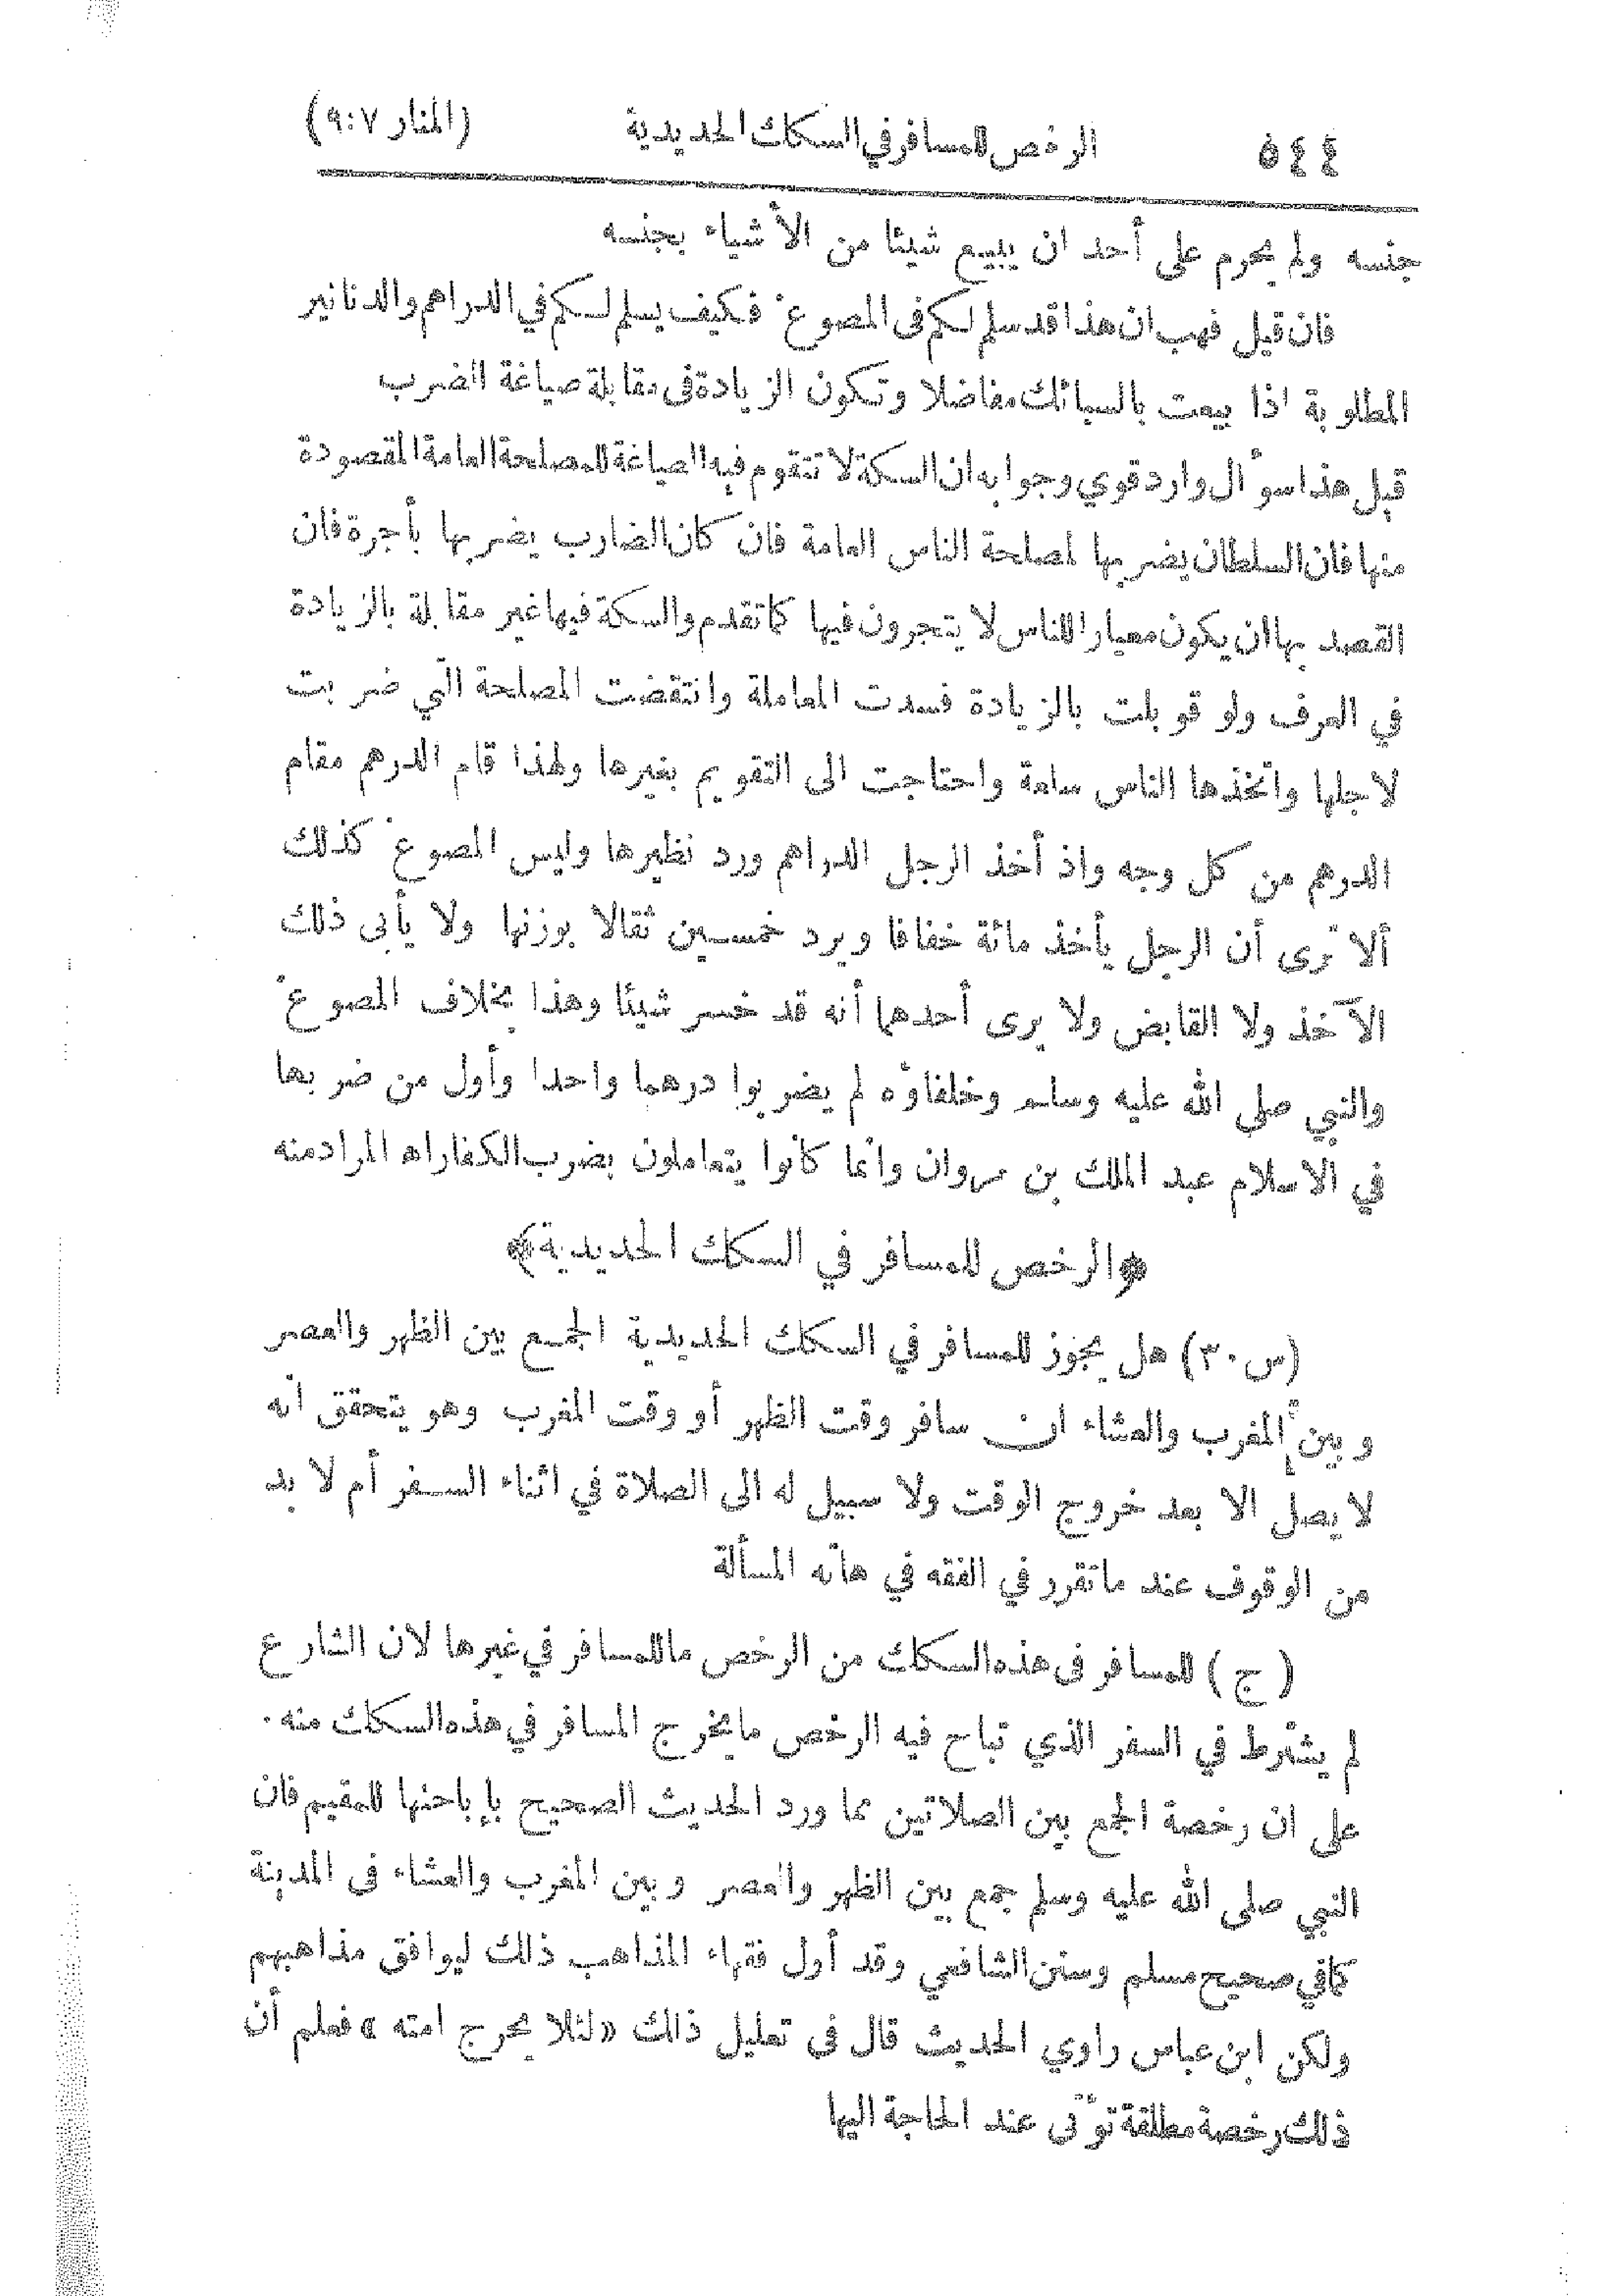 ٥٤٤ الرخص للمسافر في السكك الحديدية (المنار ٩:٧)
جنسه ولم يحرم على أحد ان يبيع شيئا من الأشياء بجنسه
فان قيل فهب ان هذا قد سلم لكم فى المصوغ فكيف يسلم لكم في الدراهم والدنانير
المطلوبة اذا بيعت بالسبائك مفاضلا وتكون الزيادة فى مقابلة صياغة الضرب
قيل هذا سؤال وارد قوي وجوابه ان السكة لا تتقوم فيه الصياغة للمصلحة العامة المقصودة
منها فان السلطان يضربها لمصلحة الناس العامة فان كان الضارب يضربها بأجرة فان
القصد بها ان يكون معيارا للناس لا يتجرون فيها كما تقدم والسكة فيها غير مقابلة بالزيادة
في العرف ولو قوبلت بالزيادة فسدت المعاملة وانتقضت المصلحة التي ضربت
لاجلها واتخذها الناس سلعة واحتاجت الى التقويم بغيرها ولهذا قام الدرهم مقام
الدرهم من كل وجه واذ أخذ الرجل الدراهم ورد نظيرها وليس المصوغ كذلك
ألا ترى أن الرجل يأخذ مائة خفافا ويرد خمسين ثقالا بوزنها ولا يأبى ذلك
الآخذ ولا القابض ولا يرى أحدهما أنه قد خسر شيئا وهذا بخلاف المصوغ
والنبي صلى الله عليه وسلم وخلفاؤه لم يضربوا درهما واحدا وأول من ضربها
في الاسلام عبد الملك بن مروان وانما كانوا يتعاملون بضرب الكفار اه المراد منه
﴿الرخص للمسافر في السكك الحديدية﴾
(س ٣٠) هل يجوز للمسافر في السكك الحديدية الجمع بين الظهر والعصر
وبين المغرب والعشاء ان سافر وقت الظهر أو وقت المغرب وهو يتحقق انه
لا يصل الا بعد خروج الوقت ولا سبيل له الى الصلاة في اثناء السفر أم لا بد
من الوقوف عند ما تقرر في الفقه في هاته المسألة
(ج) للمسافر فى هذه السكك من الرخص ما للمسافر في غيرها لان الشارع
لم يشترط في السفر الذي تباح فيه الرخص ما يخرج المسافر في هذه السكك منه.
على ان رخصة الجمع بين الصلاتين مما ورد الحديث الصحيح بإباحتها للمقيم فان
النبي صلى الله عليه وسلم جمع بين الظهر والعصر وبين المغرب والعشاء فى المدينة
كما في صحيح مسلم وسنن الشافعي وقد أول فقهاء المذاهب ذلك ليوافق مذاهبهم
ولكن ابن عباس راوي الحديث قال فى تعليل ذلك «لئلا يحرج امته» فعلم أن
ذلك رخصة مطلقة تؤتى عند الحاجة اليها